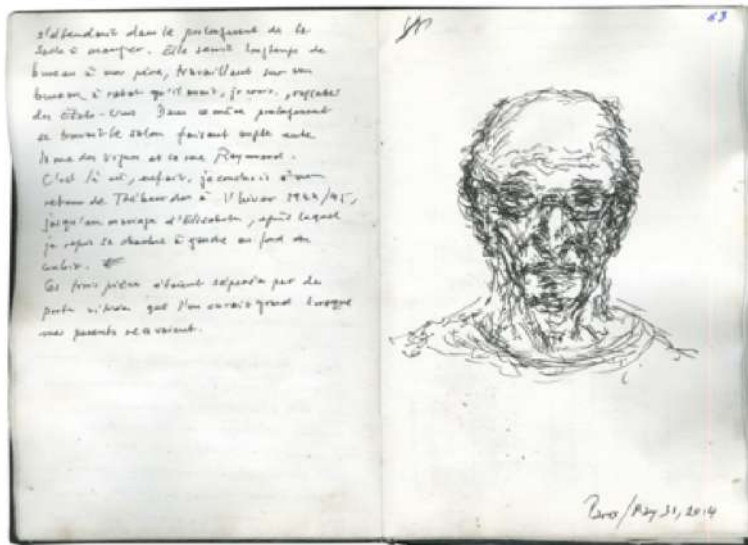 s'étendait dans le prolongement de la
salle à manger. Elle servit longtemps de
bureau à mon père, travaillant sur un
bureau à rabat qu'il avait, je crois, rapporté
des États-Unis Dans ce même prolongement
se trouvait le salon faisant angle entre
la rue des vignes et la rue Raymond.
C'est là où, enfant, je couchais à mon
retour de à l'hiver 1944/45,
jusqu'au mariage d'Elisabeth, après lequel
je repris sa chambre à gauche au fond du
couloir.
Ces trois pièces étaient séparées par des
portes vitrées que l'on ouvrait grand lorsque
mes parents recevaient.
63
Paris/May 31, 2014